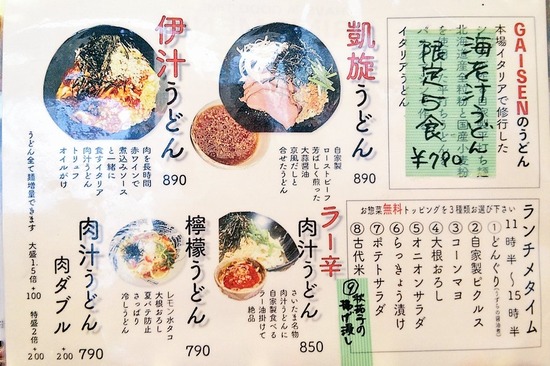 GAISENのうどん
本場イタリアで修行した
海老汁うどん
限定5食
¥790
イタリアうどん
凱旋うどん
自家製
ローストビーフ
芳ばしく煎った
大蒜醤油
京風だしと
合せたうどん
890
伊汁うどん
肉を長時間
赤ワインで
煮込みソース
と一緒に
食すイタリア
肉汁うどん
トリュフ
オイルがけ
890
うどん全て麺増量できます
大盛1.5倍 +100
特盛2倍 +200
ランチメタイム
11時半〜15時半
お惣菜無料トッピングを3種類お選び下さい
①どんぐり(うずらの醤油煮)
②自家製ピクルス
③コーンマヨ
④大根おろし
⑤オニオンサラダ
⑥らっきょう漬け
⑦ポテトサラダ
⑧古代米
⑨秋茄子の揚げ浸し
ラー辛
肉汁うどん
さいたま名物
肉汁うどんに
自家製食べる
ラー油掛けて
絶品
850
檸檬うどん
レモン水タコ
大根おろし
夏バテ防止
さっぱり
冷しうどん
790
肉汁うどん
790
肉ダブル
+200